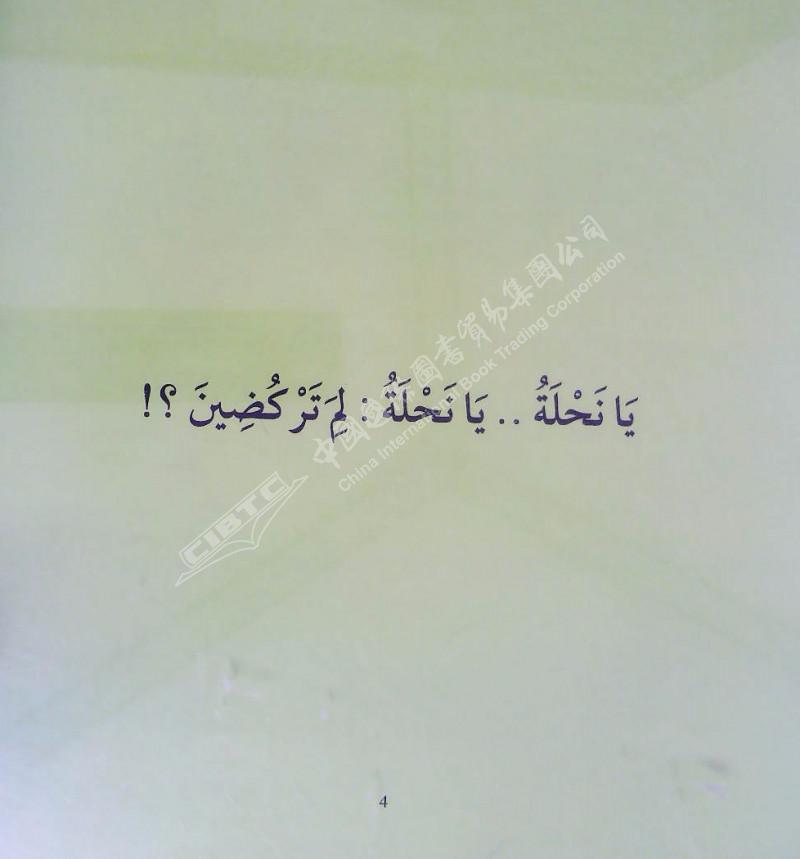 يَا نَحْلَةُ .. يَا نَحْلَةُ : لِمَ تَرْكُضِينَ ؟!
中国国际图书贸易集团公司
China International Book Trading Corporation
CIBTC
4